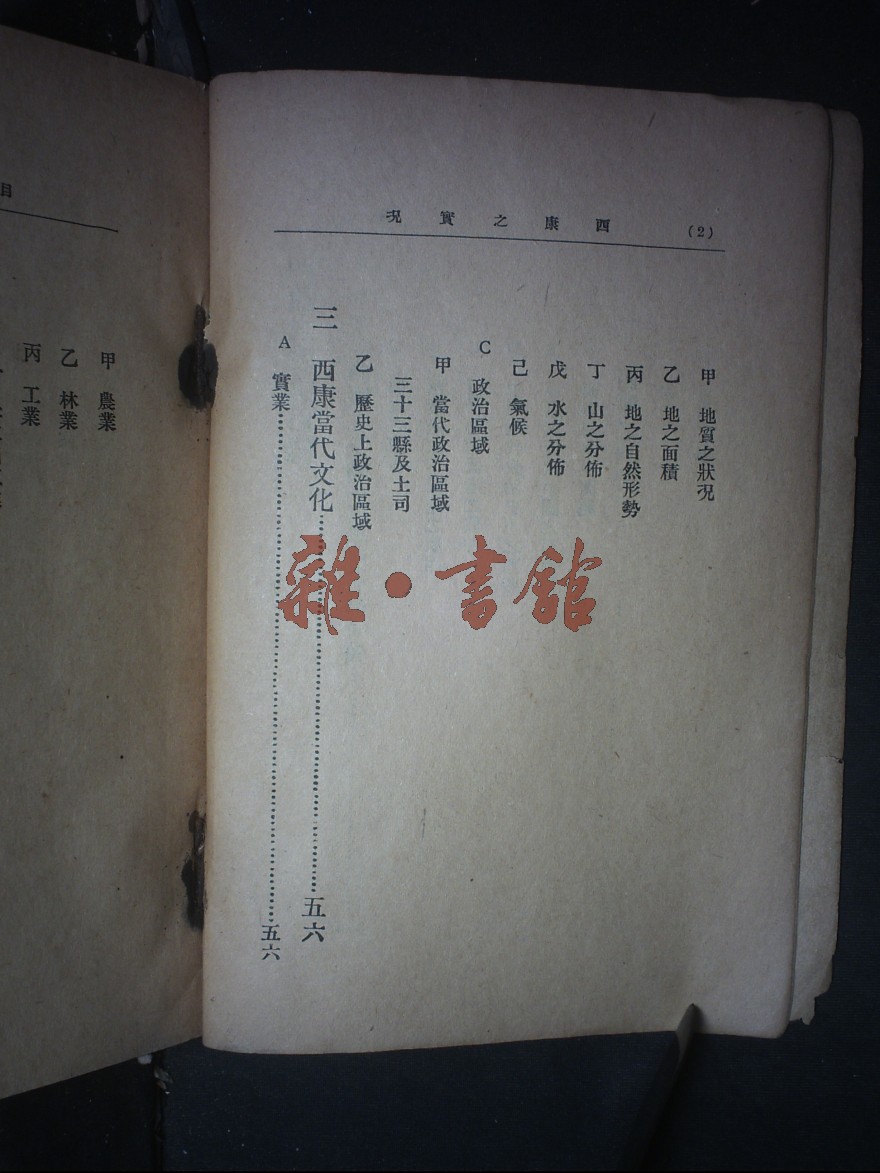 (2) 西康之實況
甲 地質之狀況
乙 地之面積
丙 地之自然形勢
丁 山之分佈
戊 水之分佈
己 氣候
C 政治區域
甲 當代政治區域
三十三縣及土司
乙 歷史上政治區域
三 西康當代文化……五六
A 實業……五六
目
甲 農業
乙 林業
丙 工業
雜·書館